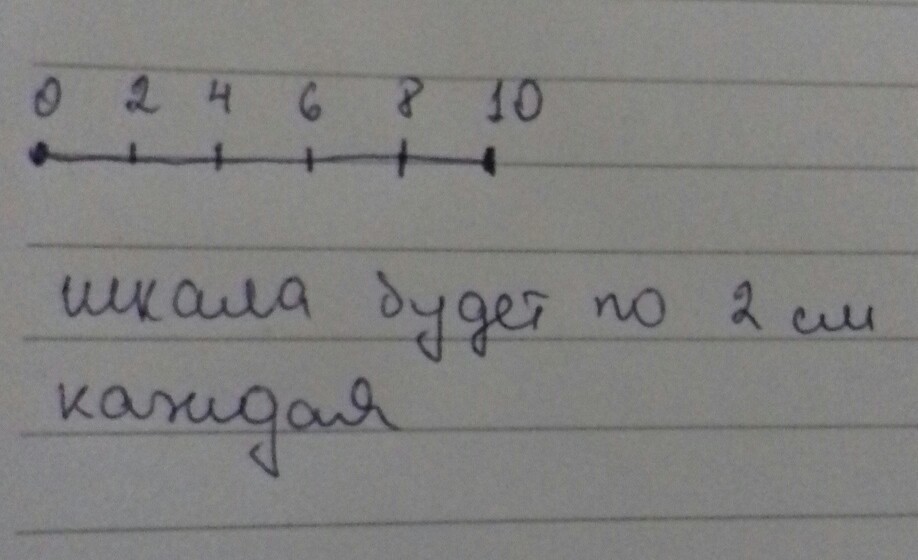 0 2 4 6 8 10
шкала будет по 2 см
каждая